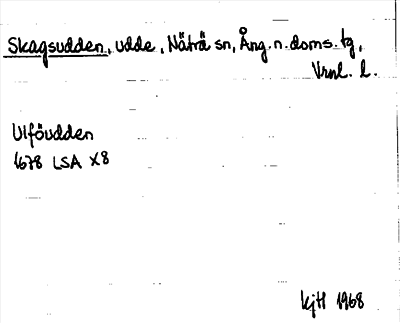 Skagsudden, udde, Näträ sn, Ång. n. doms. tg,
Vrnl. l.
Ulföudden
1678 LSA X8
kjH 1968